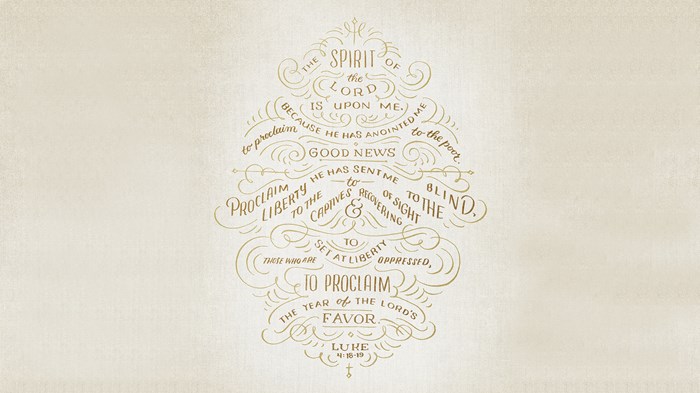 THE SPIRIT OF
the
LORD
IS UPON ME,
BECAUSE HE HAS ANOINTED ME
to proclaim GOOD NEWS to the poor.
HE HAS SENT ME
to
PROCLAIM LIBERTY TO THE CAPTIVES
& RECOVERING OF SIGHT TO THE BLIND,
TO
SET AT LIBERTY
THOSE WHO ARE OPPRESSED,
TO PROCLAIM
THE YEAR of THE LORD'S
FAVOR.
LUKE
4:18-19